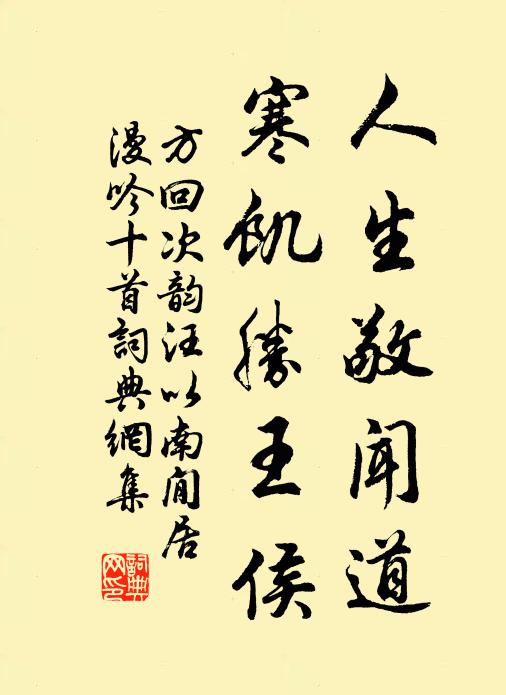 人生敬闻道
寒飢勝王侯
方回次韵汪以南閒居
漫吟十首詞典網集
詞典网印